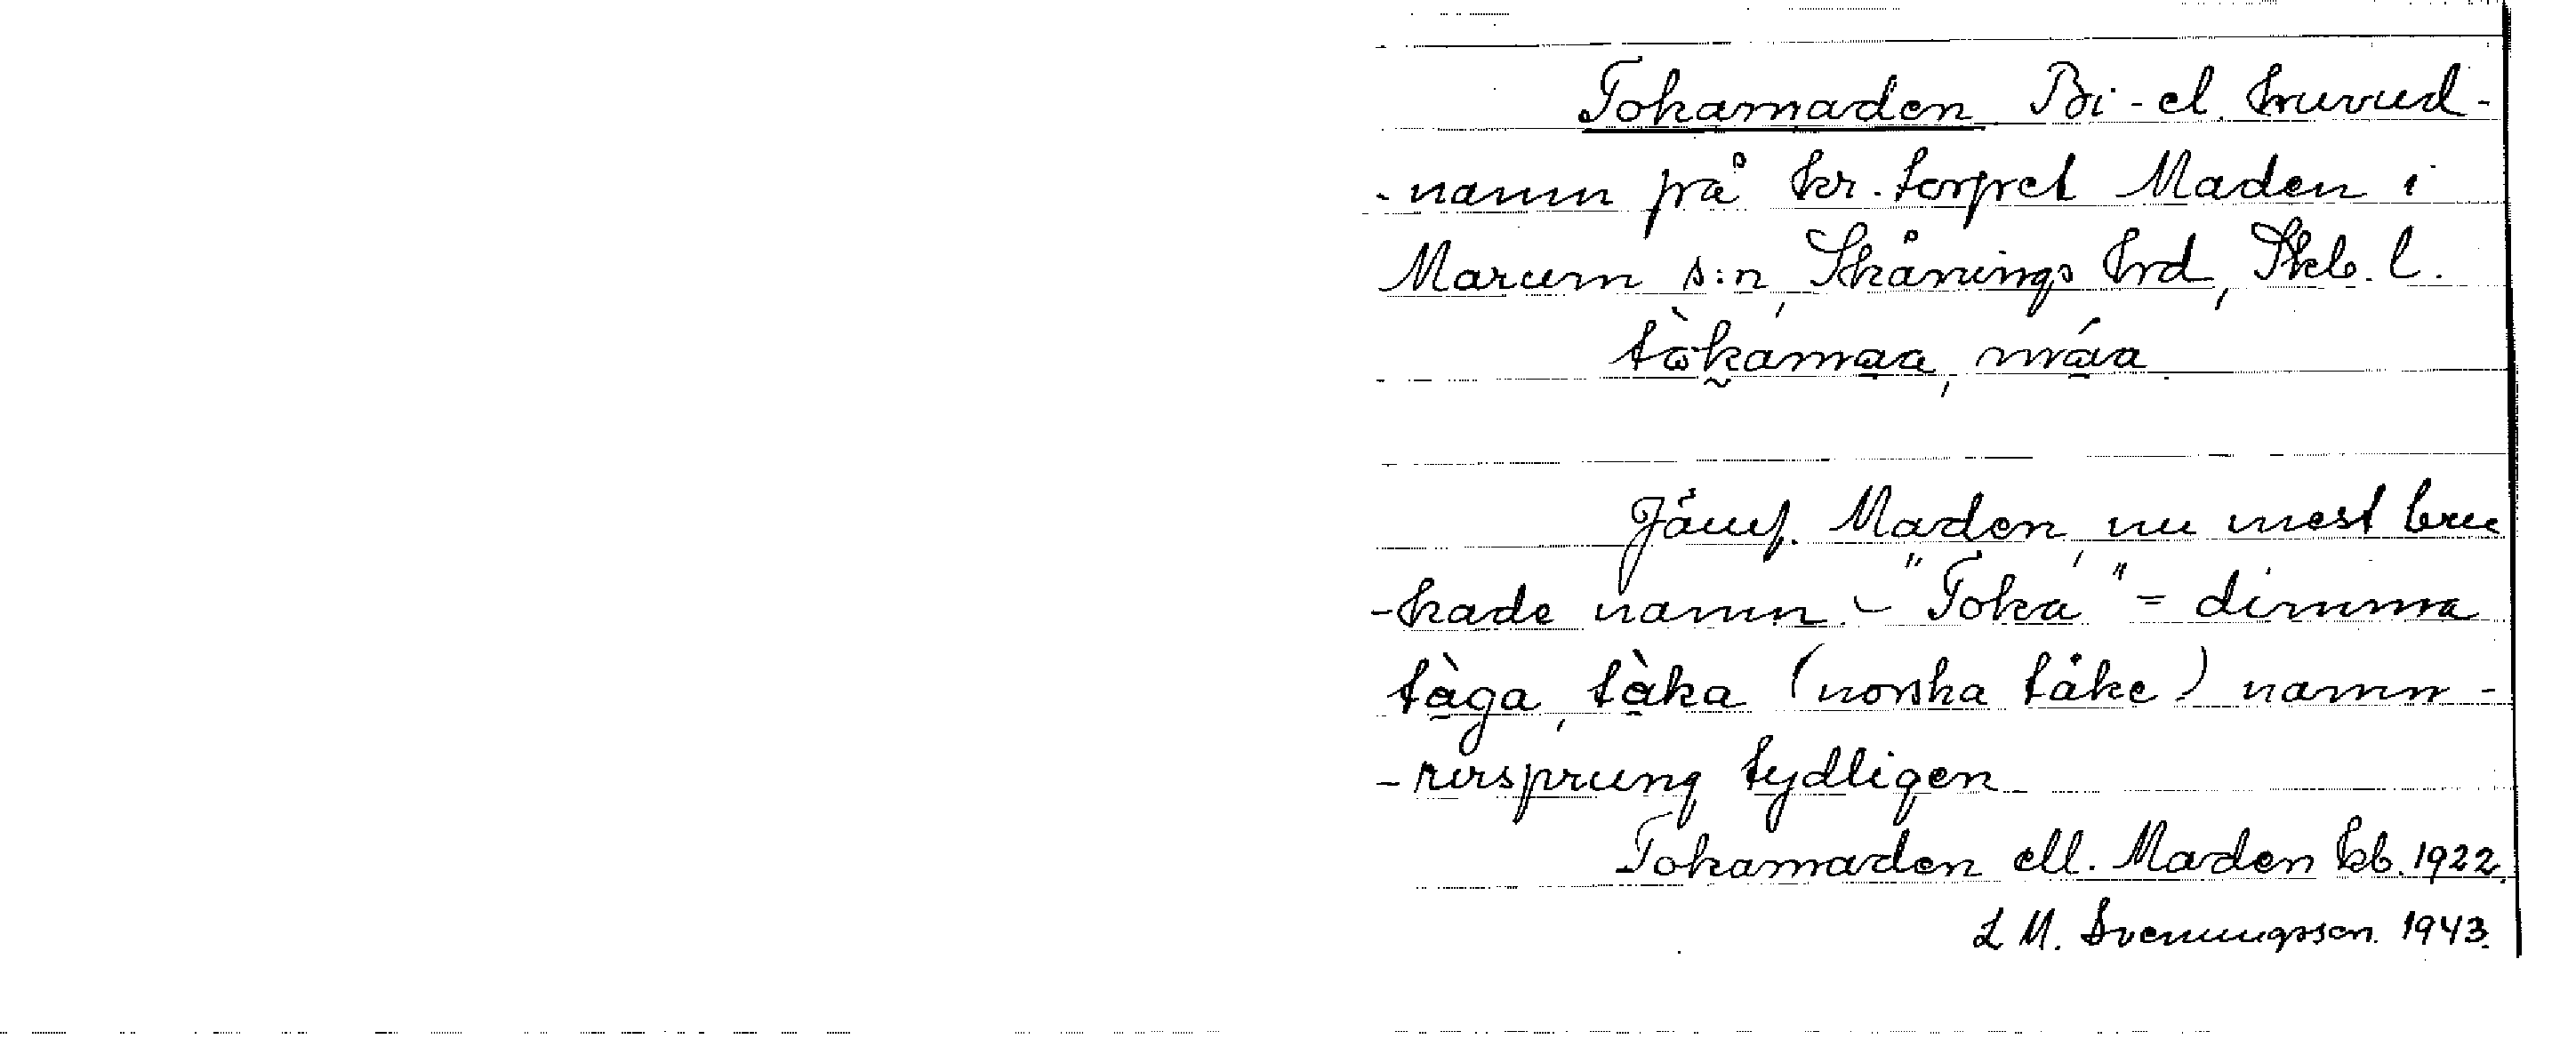 Tokamaden Bi- el. huvud-
-namn på kr. torpet Maden i
Marum s:n, Skånings hrd, Skb. l.
tòkamaa, máa
Jämf. Maden, nu mest bru
-kade namn. - "Toka" = dimma
tàga, tàka (norska tåke) namn-
-ursprung tydligen
Tokamaden ell. Maden kb. 1922.
L M. Svenungsson. 1943.